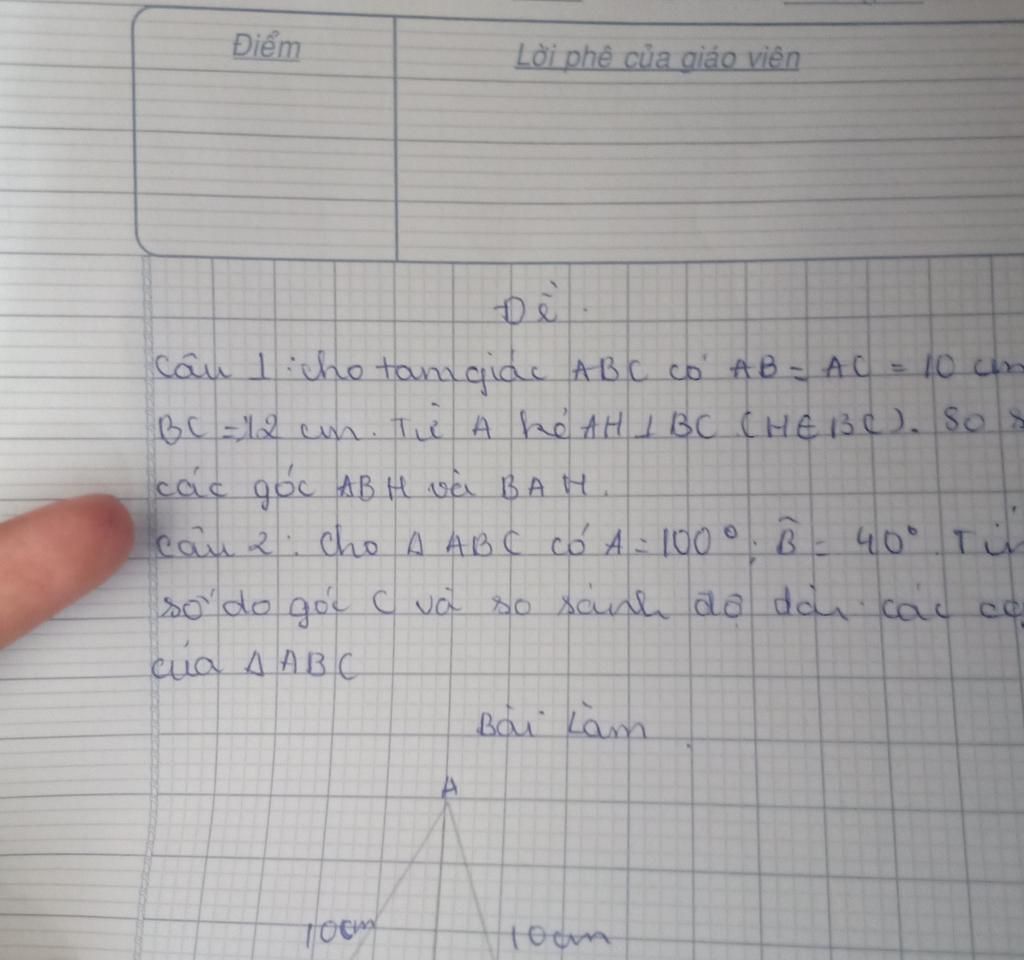 Điểm
Lời phê của giáo viên
Đề.
Câu 1: cho tam giác ABC có AB = AC = 10 cm
BC = 12 cm. Từ A kẻ AH ⊥ BC (H ∈ BC). So
các góc ABH và BAH.
Câu 2: Cho Δ ABC có A = 100°; B̂ = 40°.
số đo góc C và so sánh độ dài các
của Δ ABC
Bài Làm
A
10cm
10cm